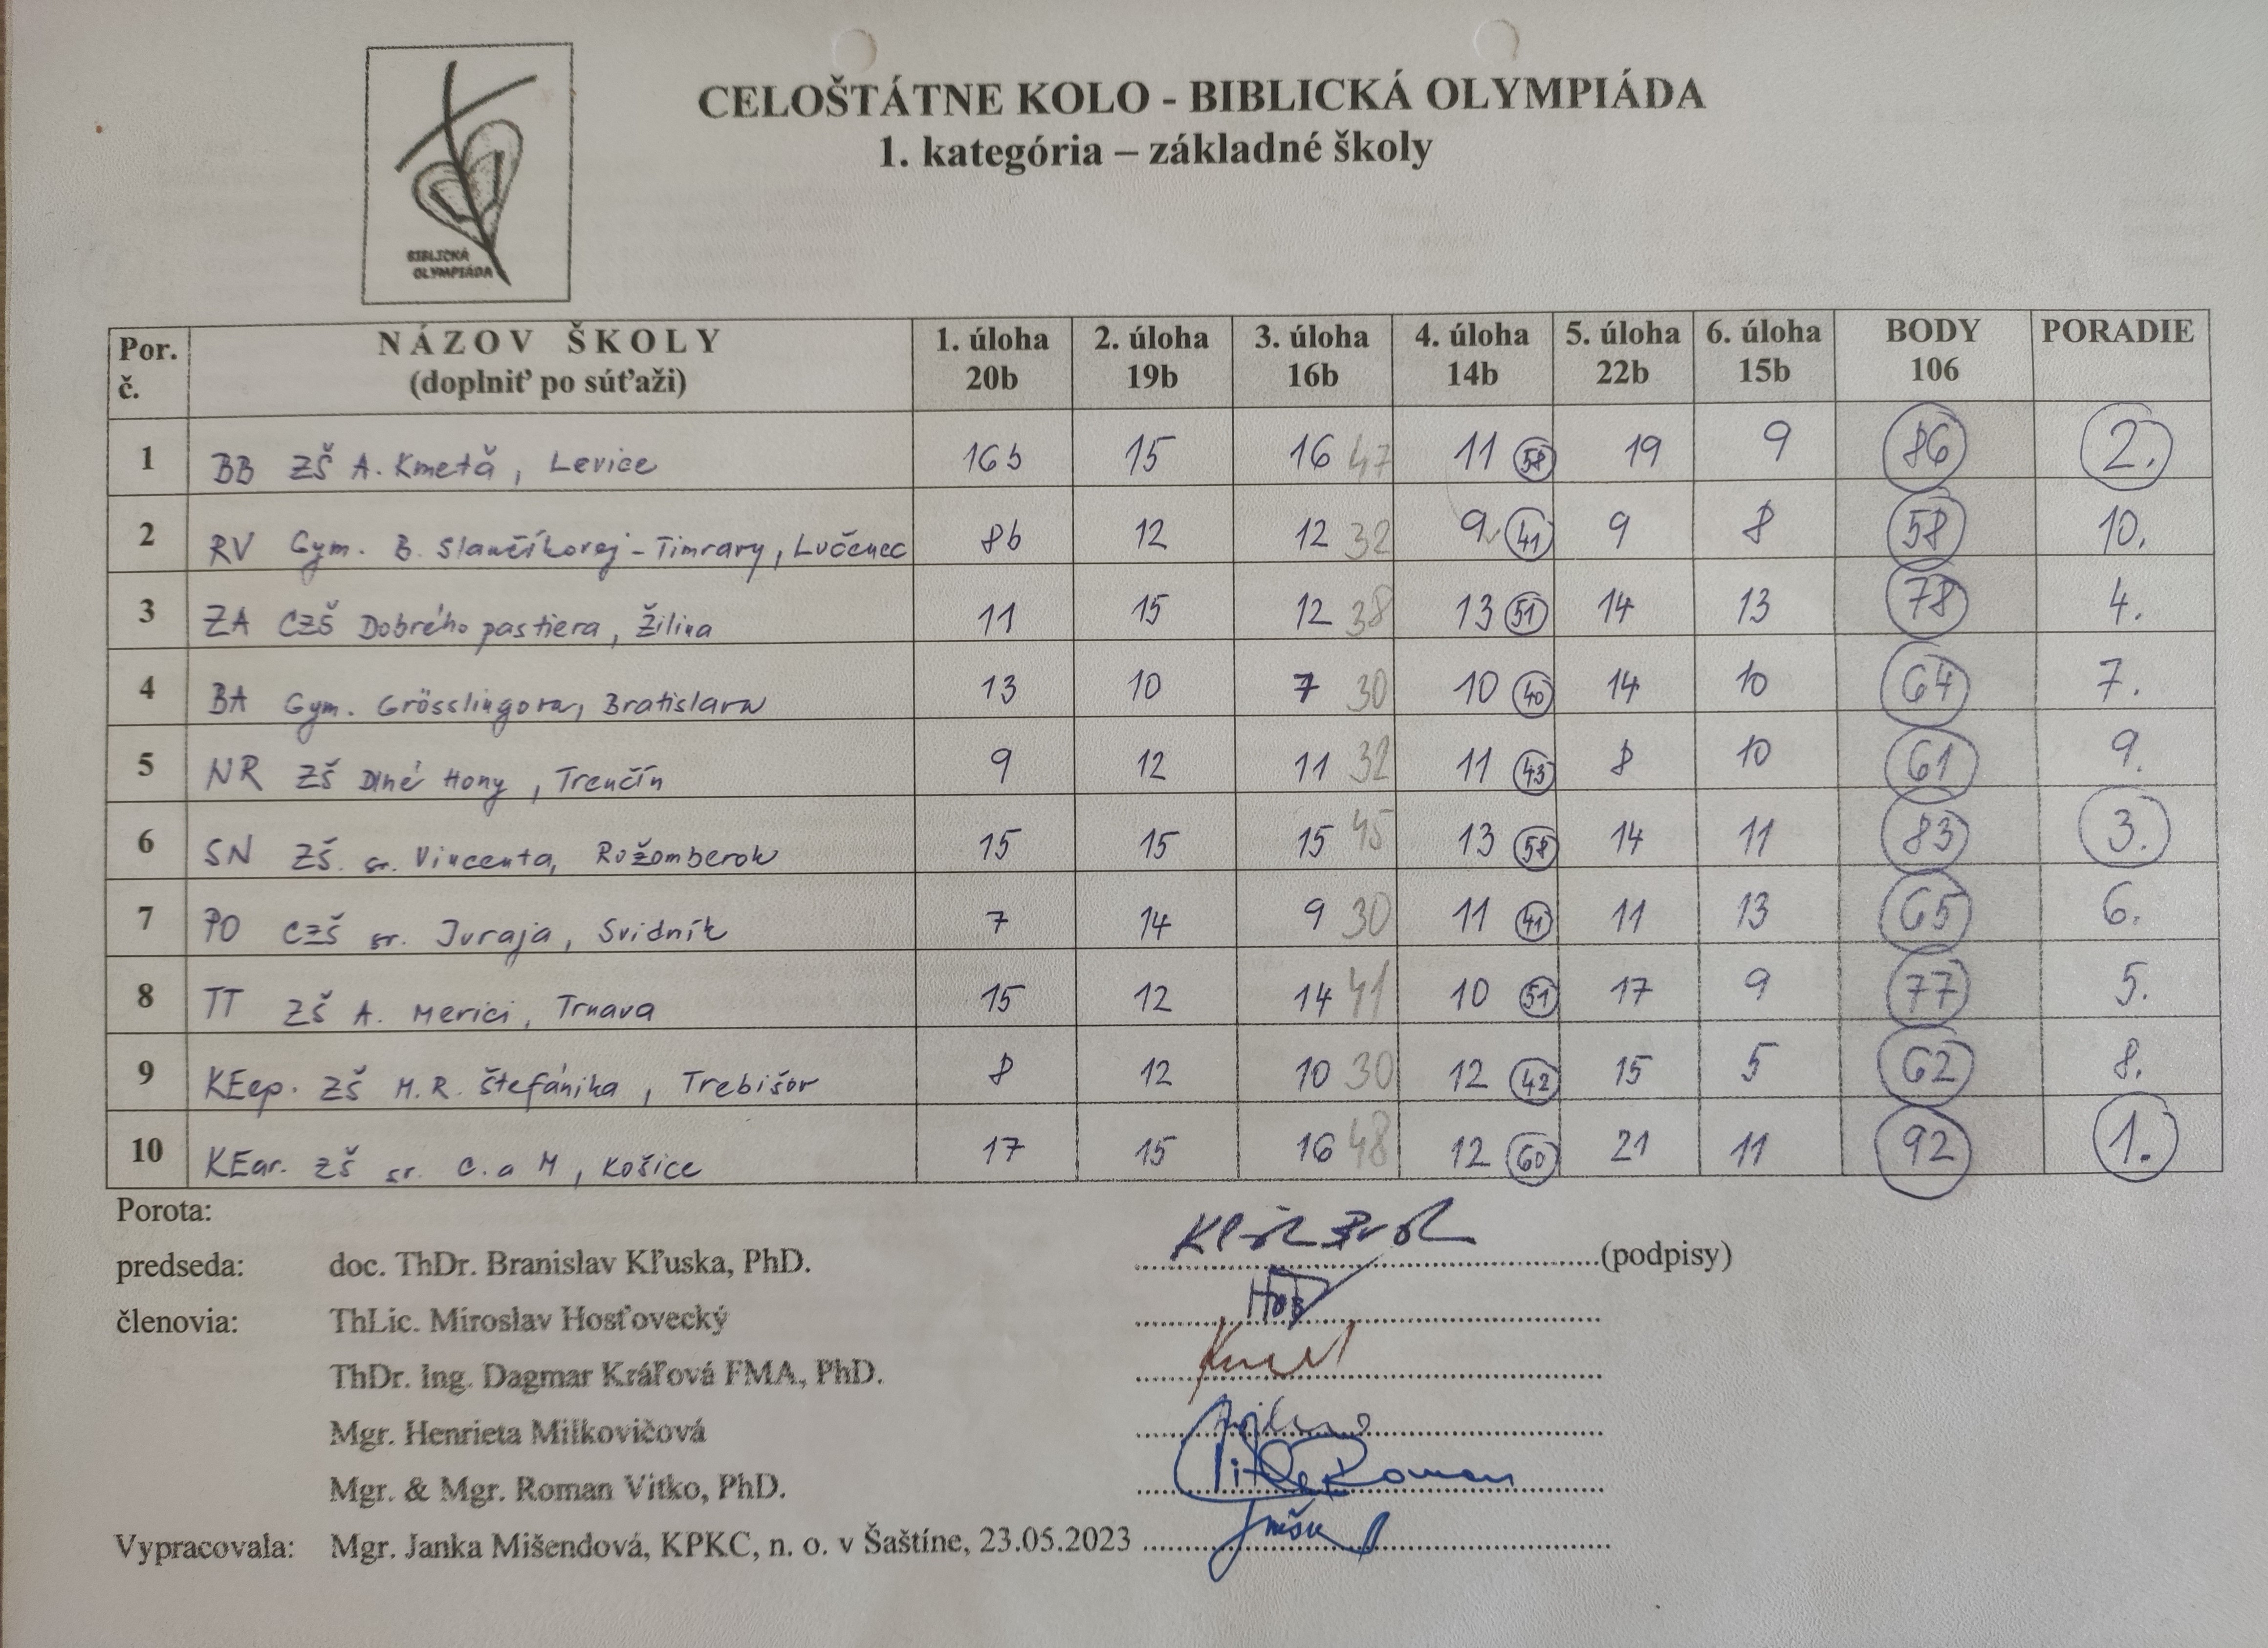 BIBLICKÁ
OLYMPIÁDA
CELOŠTÁTNE KOLO - BIBLICKÁ OLYMPIÁDA
1. kategória – základné školy
Por. č. NÁZOV ŠKOLY (doplniť po súťaži) 1. úloha 20b 2. úloha 19b 3. úloha 16b 4. úloha 14b 5. úloha 22b 6. úloha 15b BODY 106 PORADIE
1 BB ZŠ A. Kmeťa, Levice 16b 15 16 47 11 58 19 9 86 2.
2 RV Gym. B. Slančíkovej-Timravy, Lučenec 8b 12 12 32 9 41 9 8 58 10.
3 ZA CZŠ Dobrého pastiera, Žilina 11 15 12 38 13 51 14 13 78 4.
4 BA Gym. Grösslingova, Bratislava 13 10 7 30 10 40 14 10 64 7.
5 NR ZŠ Dlhé Hony, Trenčín 9 12 11 32 11 43 8 10 61 9.
6 SN ZŠ sv. Vincenta, Ružomberok 15 15 15 45 13 58 14 11 83 3.
7 PO CZŠ sv. Juraja, Svidník 7 14 9 30 11 41 11 13 65 6.
8 TT ZŠ A. Merici, Trnava 15 12 14 41 10 51 17 9 77 5.
9 KEep. ZŠ M.R. Štefánika, Trebišov 8 12 10 30 12 42 15 5 62 8.
10 KEar. ZŠ sv. C. a M, Košice 17 15 16 48 12 60 21 11 92 1.
Porota:
predseda: doc. ThDr. Branislav Kľuska, PhD. (podpisy)
členovia: ThLic. Miroslav Hosťovecký
ThDr. Ing. Dagmar Kráľová FMA, PhD.
Mgr. Henrieta Milkovičová
Mgr. & Mgr. Roman Vitko, PhD.
Vypracovala: Mgr. Janka Mišendová, KPKC, n. o. v Šaštíne, 23.05.2023